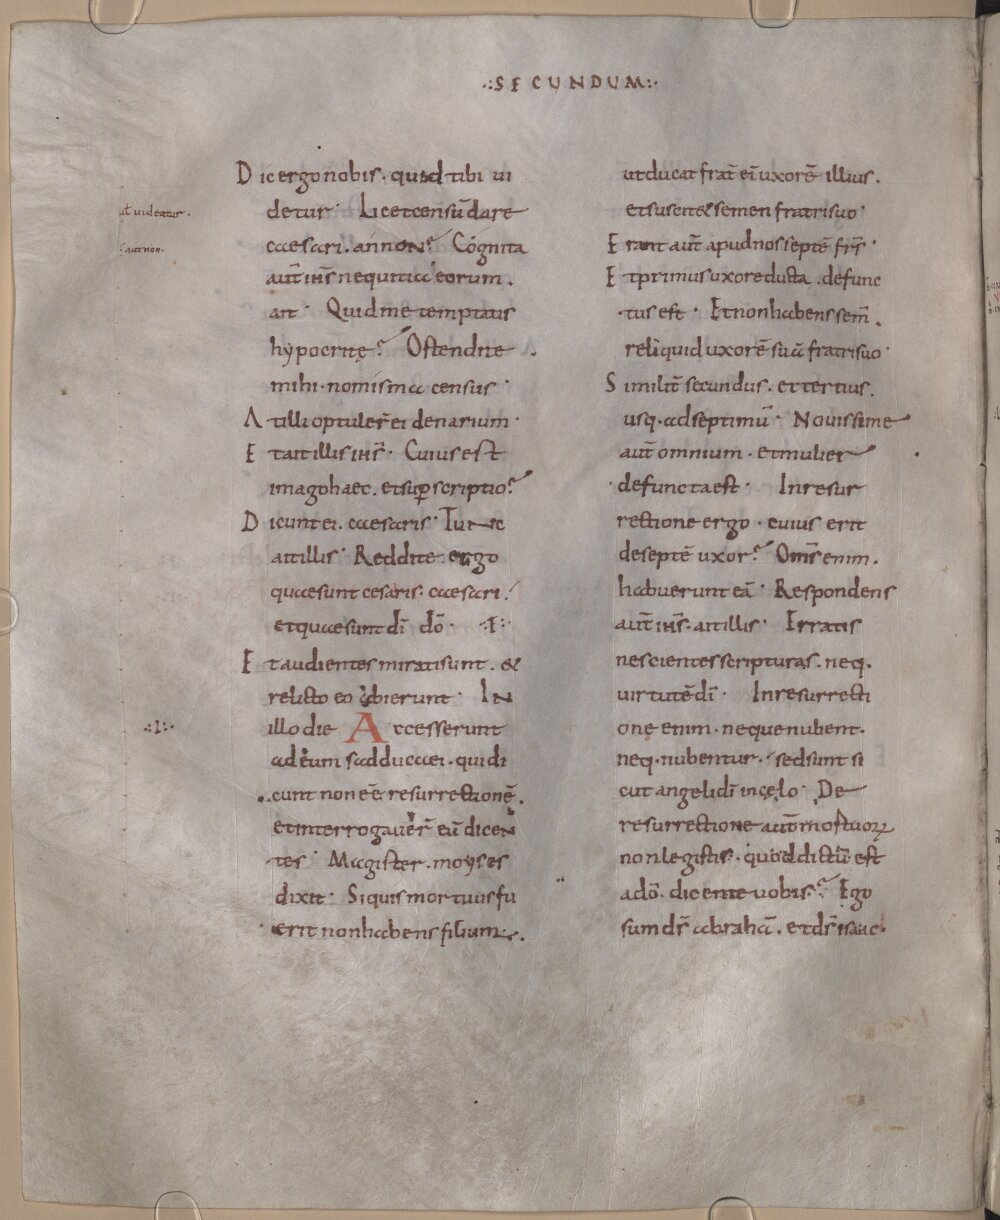 .:SECUNDUM:.
Dic ergo nobis. quid tibi ui
detur· Licet censū dare
caesari. an non? Cognita
aut̄ ih̄s nequitia eorum.
ait· Quid me temptatis
hypocritę? Ostendite
mihi·nomisma census·
At illi optuler̄ ei denarium·
Et ait illis ih̄s· Cuius est
imago haec. et sup̱scriptio?
Dicunt ei. caesaris· Tunc
ait illis· Reddite ergo
quae sunt cesaris. caesari.
et quae sunt dī dō·
Et audientes mirati sunt. &
relicto eo abierunt· In
illo die Accesserunt
ad eum sadducaei. qui di
cunt non eē resurrectionē.
et interrogauer̄ eū dicen
tes· Magister. moyses
dixit· Si quis mortuus fu
erit non habens filium.
ut uideatur.
aut non.
.:I:.
ut ducat frat̄ ei' uxorē illius.
et suscitet semen fratri suo·
Erant aut̄ apud nos septē fr̄s·
Et primus uxore ducta. defunc
tus est· Et non habens sem̄.
reliquid uxorē suā fratri suo·
Similit̄ secundus. et tertius.
usq. ad septimū· Nouissime
aut̄ omnium. et mulier
defuncta est· In resur
rectione ergo. cuius erit
de septē uxor? Om̄s enim.
habuerunt eā· Respondens
aut̄ ih̄s. ait illis· Erratis
nescientes scripturas. neq.
uirtutē dī· In resurrecti
one enim. neque nubent.
neq. nubentur. sed sunt si
cut angeli dī in cęlo· De
resurrectione aut̄ mortuoꝝ
non legistis. quod dictū est
a dō. dicente uobis? Ego
sum d̄s abrahā. et d̄s isaac.